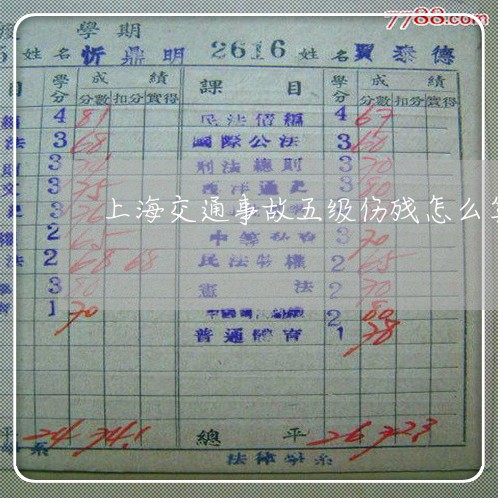 7788.com
學期
5 姓名 忻鼎明 2616 姓名 賈泰德
目 學分 成績 課目 學分 成績
分數 扣分 實得 分數 扣分 實得
4 81 民法債編 4 67
法 3 68 國際公法 3 60
3 刑法總則 3 70
3 75 3 80
上海交通事故五级伤残怎么
2 65 3 70
法 2 68 68 民法物權 2 65
3 80 憲法 2 70
1 70 2 80
普通體育 1 78
平 24 74.1 總平 26 72.3
系 法律學系